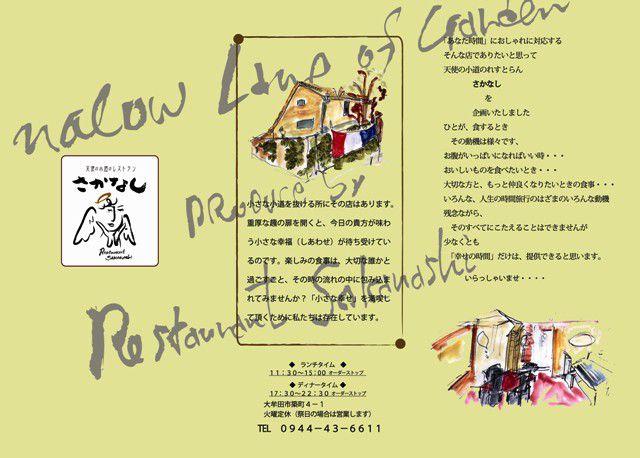 nalow Lane of Garden
PRoduce by
Restaurant Sakanashi
天使の小道のレストラン
さかなし
Restaurant
Sakanashi
小さな小道を抜ける所にその店はあります。
重厚な趣の扉を開くと、今日の貴方が味わ
う小さな幸福（しあわせ）が待ち受けてい
るのです。楽しみの食事は、大切な誰かと
過ごすこと、その時の流れの中に包み込ま
れてみませんか？「小さな幸せ」を満喫し
て頂くために私たちは存在しています。
◆ ランチタイム ◆
１１：３０〜１５：００ オーダーストップ
◆ ディナータイム ◆
１７：３０〜２２：３０ オーダーストップ
大牟田市築町４－１
火曜定休（祭日の場合は営業します）
TEL ０９４４－４３－６６１１
「あなた時間」におしゃれに対応する
そんな店でありたいと思って
天使の小道のれすとらん
さかなし
を
企画いたしました
ひとが、食するとき
その動機は様々です、
お腹がいっぱいになればいい時・・・
おいしいものを食べたいとき・・・
大切な方と、もっと仲良くなりたいときの食事・・・
いろんな、人生の時間旅行のはざまのいろんな動機
残念ながら、
そのすべてにこたえることはできませんが
少なくとも
「幸せの時間」だけは、提供できると思います。
いらっしゃいませ・・・・